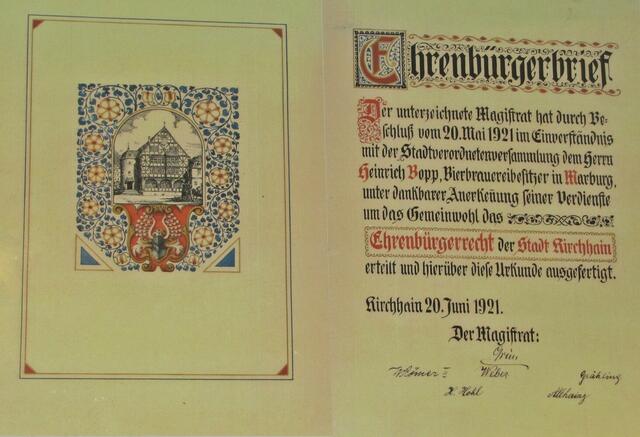 Ehrenbürgerbrief
Der unterzeichnete Magistrat hat durch Be-
schluß vom 20. Mai 1921 im Einverständnis
mit der Stadtverordnetenversammlung dem Herrn
Heinrich Bopp, Bierbrauereibesitzer in Marburg,
unter dankbarer Anerkeñung seiner Verdienste
um das Gemeinwohl das
Ehrenbürgerrecht der Stadt Kirchhain
erteilt und hierüber diese Urkunde ausgefertigt.
Kirchhain 20. Juni 1921.
Der Magistrat:
Weber
H. Hohl